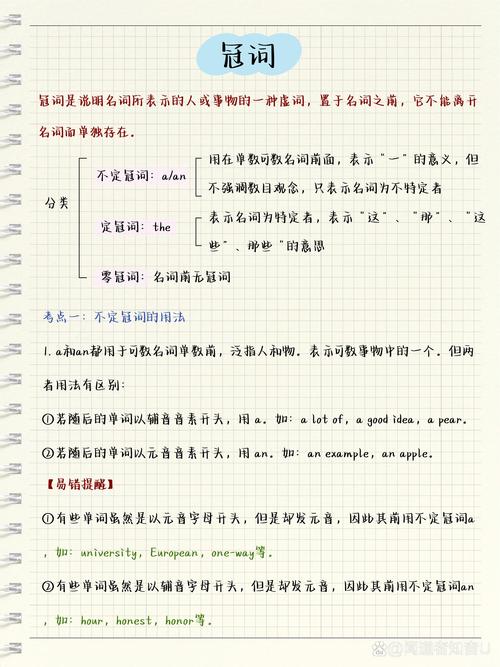 冠词
冠词是说明名词所表示的人或事物的一种虚词，置于名词之前，它不能离开
名词而单独存在．
分类
不定冠词：a/an
用在单数可数名词前面，表示“一”的意义，但
不强调数目观念，只表示名词为不特定者
定冠词：the
表示名词为特定者，表示“这”、“那”、“这
些”、那些”的意思
零冠词：名词前无冠词
考点一：不定冠词的用法
1. a和an都用于可数名词单数前，泛指人和物。表示可数事物中的一个。但两
者用法有区别：
①若随后的单词以辅音音素开头，用 a。如：a lot of，a good idea，a pear．
②若随后的单词以元音音素开头，用 an。如：an example，an apple．
【易错提醒】
①有些单词虽然是以元音字母开头，但是却发元音，因此其前用不定冠词a
，如：university，European，one-way等。
②有些单词虽然是以辅音字母开头，但是却发元音，因此其前用不定冠词an
，如：hour，honest，honor等。
@闻道者知音U